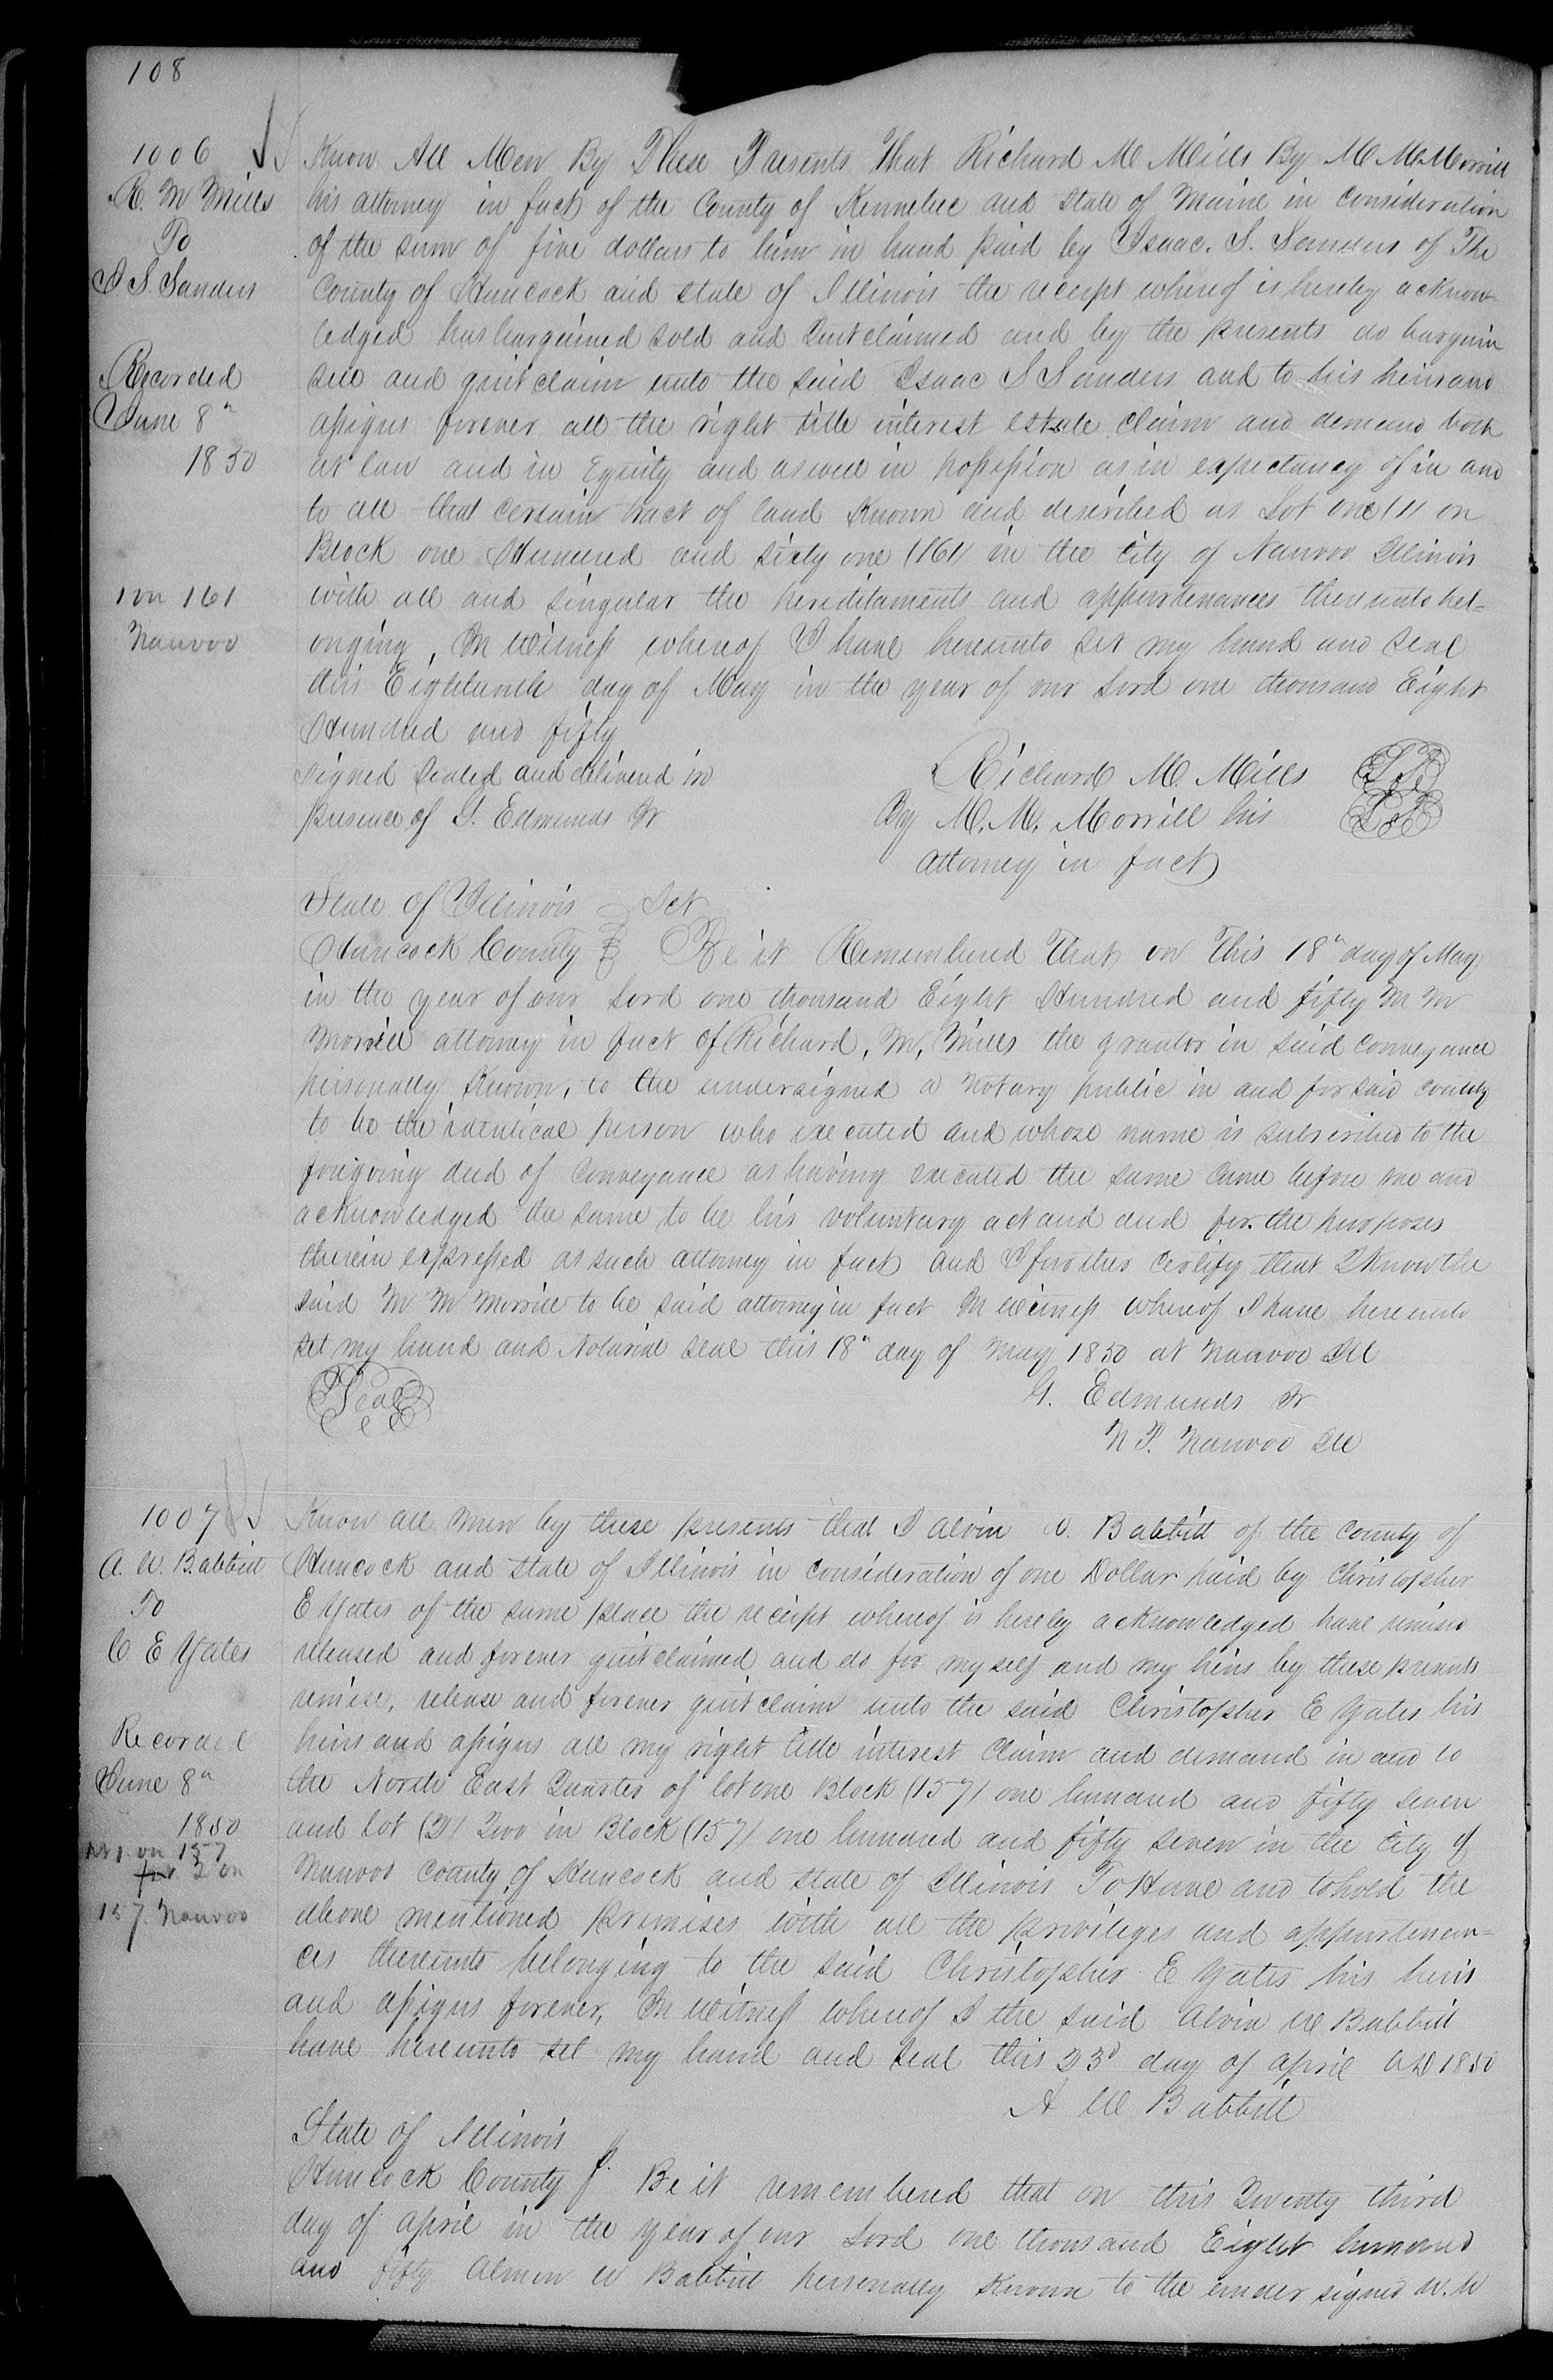 108
1006
R. M Mills
To
I. S. Sanders
Recorded
June 8th
1850
1 on 161
Nauvoo
Know All Men By These Presents That Richard M Mills By M M Morrill
his attorney in fact of the County of Kennebec and State of Maine in consideration
of the sum of five dollars to him in hand paid by Isaac. S. Sanders of The
County of Hancock and state of Illinois the receipt whereof is hereby acknow-
ledged has bargained sold and Quitclaimed and by the presents do bargain
sell and quit claim unto the said Isaac S Sanders and to his heirs and
assigns forever all the right title interest estate claim and demand both
at law and in Equity and as well in possession as in expectancy of in and
to all that certain tract of land Known and described as Lot one (1) on
Block one Hundred and sixty one (161) in the City of Nauvoo Illinois
with all and singular the hereditaments and appurtenances thereunto bel=
onging, In Witness whereof I have hereunto set my hand and seal
this Eighteenth day of May in the year of our Lord one thousand Eight
Hundred and fifty
signed sealed and delivered in
presence of G. Edmunds Jr
Richard M. Mills LS
By M. M. Morrill his LS
attorney in fact
State of Illinois Sct
Hancock County Be it Remembered That on This 18th day of May
in the year of our Lord one thousand Eight Hundred and fifty M M
Morrill attorney in fact of Richard, M, Mills the grantor in said conveyance
personally Known, to the undersigned a Notary public in and for said county
to be the identical person who executed and whose name is subscribed to the
foregoing deed of conveyance as having executed the same came before me and
acknowledged the same to be his voluntary act and deed for the purposes
therein expressed as such attorney in fact and I further certify that I Know the
said M M Morrill to be said attorney in fact In Witness whereof I have hereunto
set my hand and Notarial seal this 18th day of May 1850 at Nauvoo Ill
Seal
G. Edmunds Jr
N P. Nauvoo Ill
1007
A. W. Babbitt
To
C. E Yates
Recorded
June 8th
1850
1 on 157
2 on
157. Nauvoo
Know all men by these presents that I Alvin W. Babbitt of the County of
Hancock and state of Illinois in consideration of one Dollar paid by Christopher
E Yates of the same place the receipt whereof is hereby acknowledged have remised
released and forever quitclaimed and do for myself and my heirs by these presents
remise, release and forever quitclaim unto the said Christopher E Yates his
heirs and assigns all my right title interest claim and demand in and to
the North East Quarter of lot one Block (157) one hundred and fifty seven
and lot (2) Two in Block (157) one hundred and fifty seven in the City of
Nauvoo County of Hancock and state of Illinois To Have and to hold the
above mentioned premises with all the privileges and appurtenan=
ces thereunto belonging to the said Christopher E Yates his heirs
and assigns forever, In Witness whereof I the said Alvin W Babbitt
have hereunto set my hand and seal this 23d day of April AD 1850
A W Babbitt
State of Illinois
Hancock County Be it remembered that on this Twenty third
day of April in the year of our Lord one thousand Eight hundred
and fifty Almon W Babbitt personally Known to the undersigned W. W